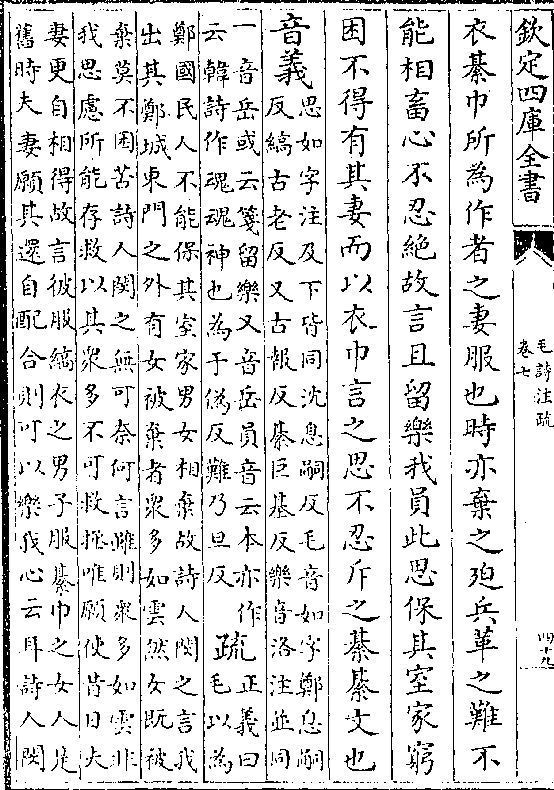 欽定四庫全書
毛詩注疏
卷七
四十九
衣綦巾所為作者之妻服也時亦棄之迫兵革之難不
能相畜心不忍絶故言且留樂我員此思保其室家窮
困不得有其妻而以衣巾言之思不忍斥之綦綦文也
音義
思如字注及下皆同沈息嗣反毛音如字鄭息嗣
反縞古老反又古報反綦巨基反樂音洛注並同
一音岳或云箋留樂又音岳員音云本亦作
云韓詩作魂魂神也為于偽反難乃旦反
疏
正義曰
毛以為
鄭國民人不能保其室家男女相棄故詩人閔之言我
出其鄭城東門之外有女被棄者衆多如雲然女既被
棄莫不困苦詩人閔之無可奈何言雖則衆多如雲非
我思慮所能存救以其衆多不可救拯唯願使昔日夫
妻更自相得故言彼服縞衣之男子服綦巾之女人是
舊時夫妻願其還自配合則可以樂我心云耳詩人閔